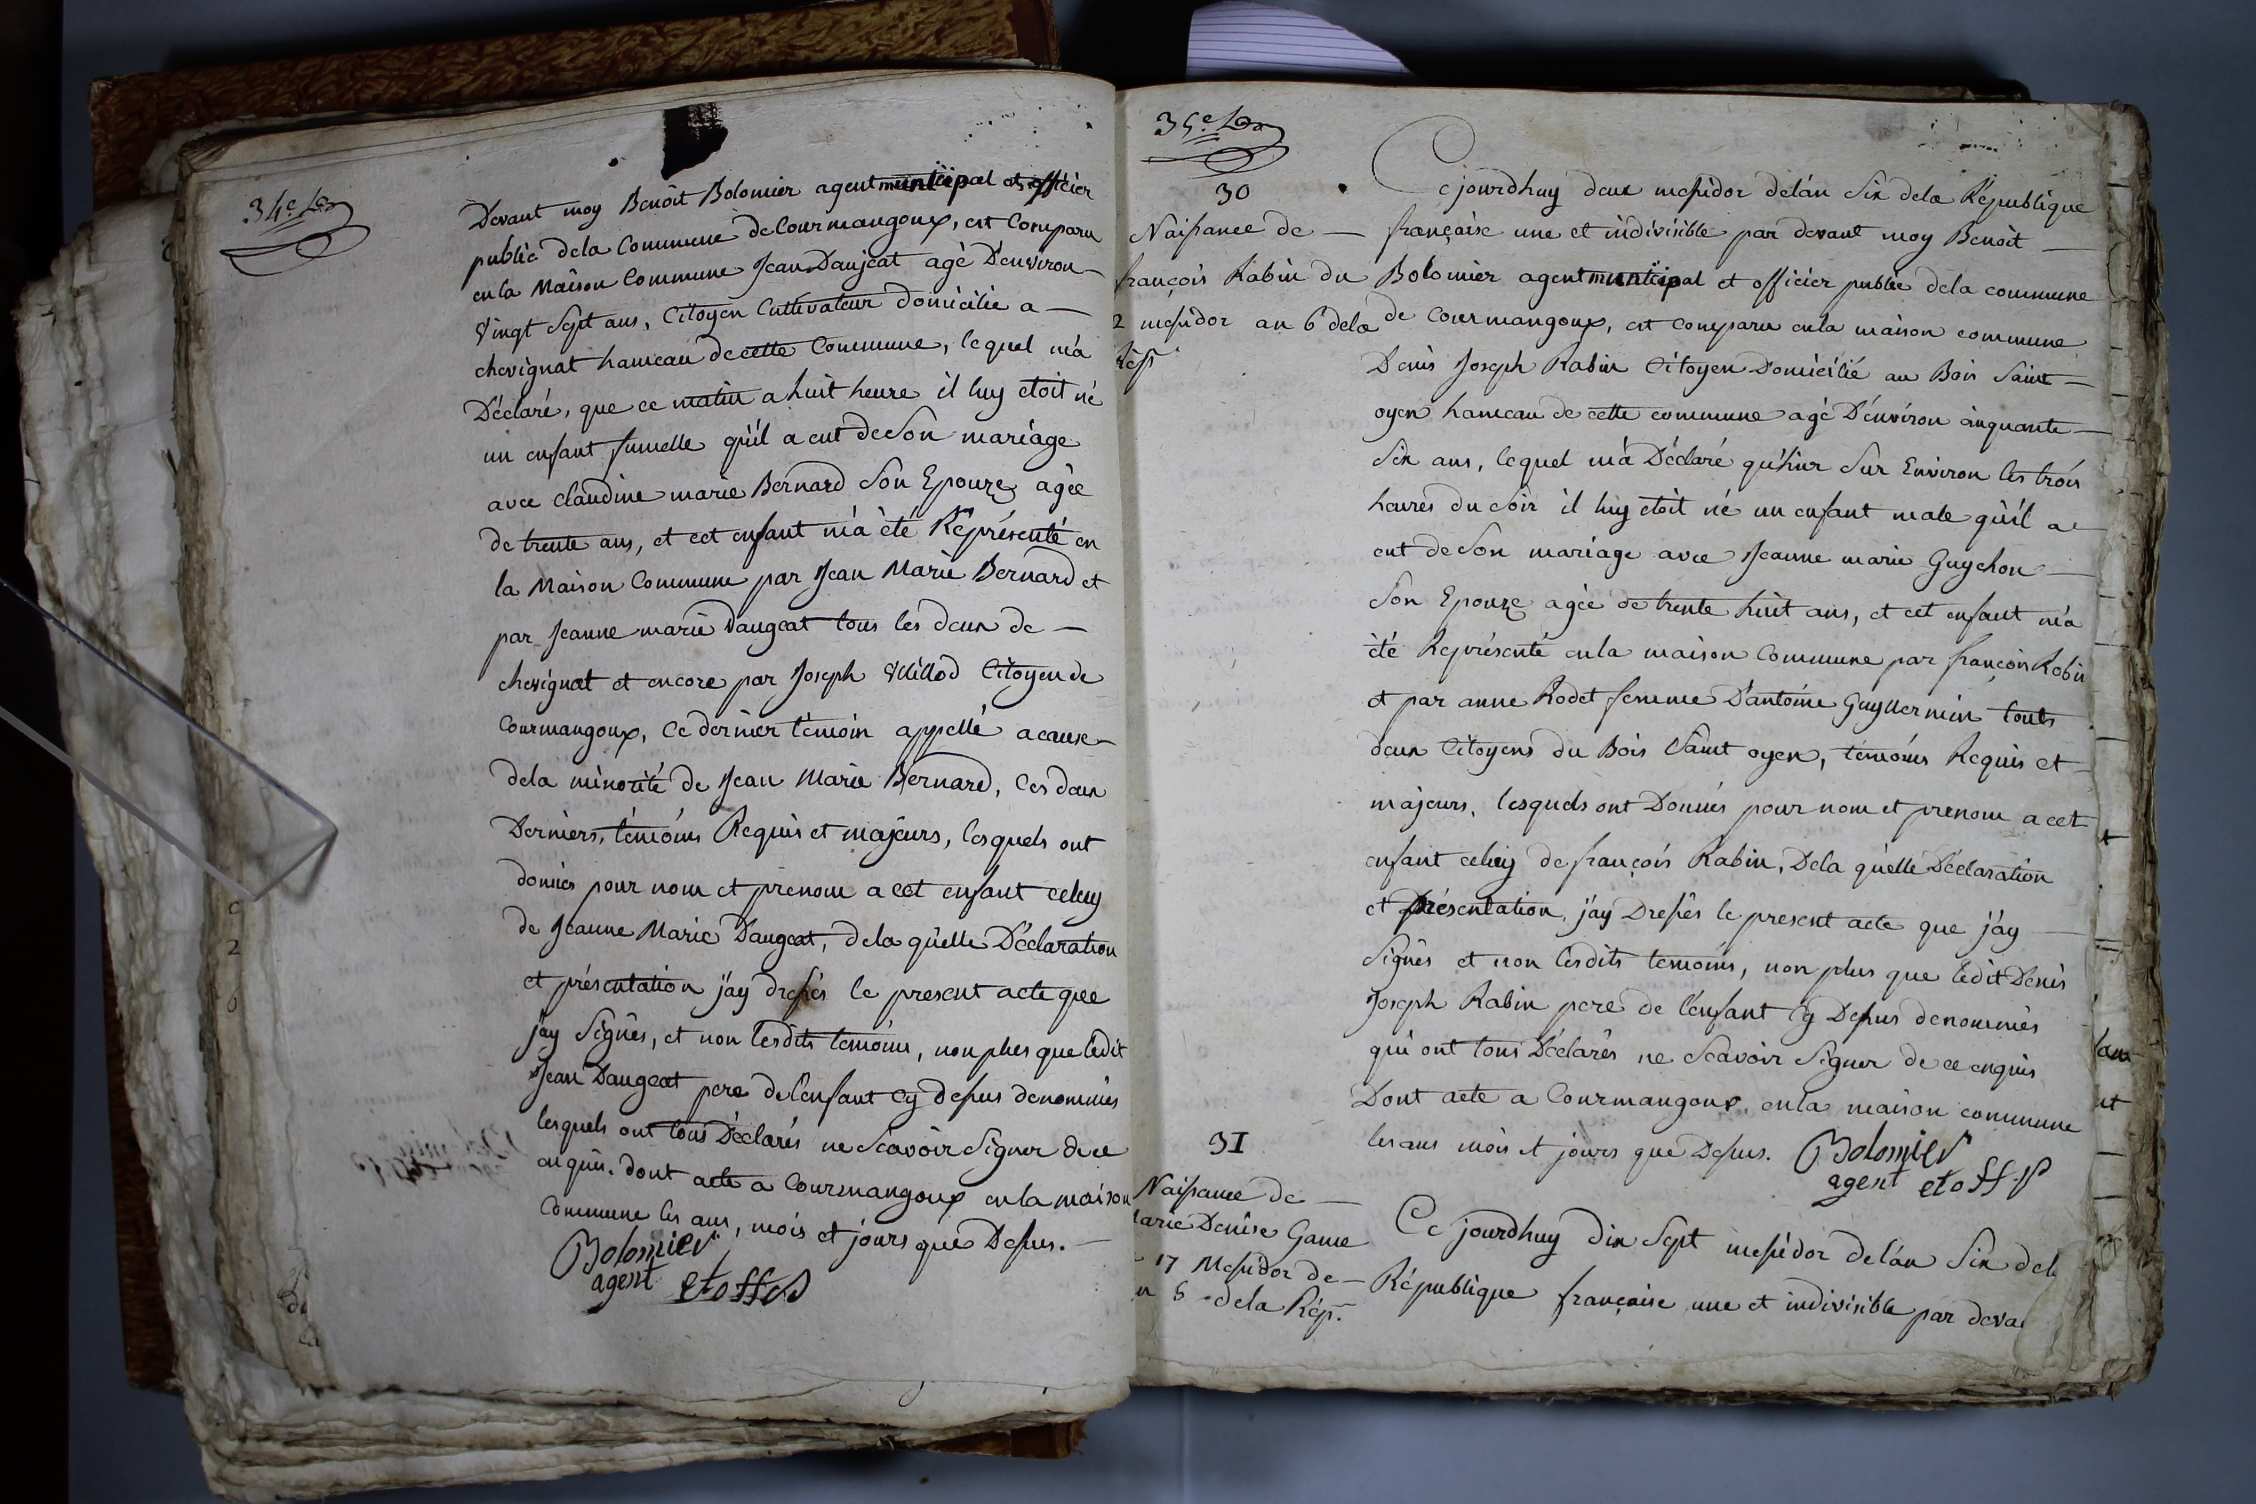 34e
Devant moy Benoît Bolomier agent municipal et officier
public dela Commune de Courmangoux, est Comparu
enla Maison Commune Jean Daujeat agé D'environ
vingt Sept ans, Citoyen Cultivateur domicilié a
chevignat hameau de cette Commune, lequel m'a
Déclaré, que ce matin a huit heure il luy etoit né
un enfant fumelle qu'il a eut de Son mariage
avec claudine marie Bernard Son Epouze agée
de trente ans, et cet enfant m'a été Réprésenté en
la Maison Commune par Jean Marie Bernard et
par Jeanne marie Daugeat tous les deux de
chevignat et encore par Joseph Citoyen de
Courmangoux, Ce dernier témoin appellé acause
dela minorité de Jean Marie Bernard, Ces deux
Derniers, témoins Requis et majeurs, lesquels ont
donnés pour nom et prenom a cet enfant celuy
de Jeanne Marie Daugeat, dela quelle Déclaration
et présentation j'ay dressés le present acte que
j'ay Signés, et non lesdits temoins, non plus que ledit
Jean Daugeat pere del'enfant Cy Dessus denommés
lesquels ont tous Déclarés ne Scavoir Signer de ce
enquis. dont acte a Courmangoux enla maison
Commune les ans, mois et jours que Dessus.
Bolomier
agent et off
35e
30
Naissance de
françois Rabin du
2 messidor an 6 dela
Rép
Cejourdhuy deux messidor delán Six dela République
française une et indivisible par devant moy Benoît
Bolomier agent municipal et officier public dela commune
de Courmangoux, est comparu enla maison commune
Denis Joseph Rabin Citoyen Domicilié au Bois Saint
oyen hameau de cette commune agé D'environ cinquante
Six ans, lequel m'a Déclaré qu'hier Sur Environ les trois
heures du Soir il luy etoit né un enfant male qu'il a
eut de Son mariage avec Jeanne marie Guychon
Son Epouze agée de trente huit ans, et cet enfant m'a
été Représenté enla maison Commune par françois Robin
et par anne Rodet femme D'antoine Guyllermin touts
deux Citoyens du Bois Saint oyen, témoins Requis et
majeurs, lesquels ont Donnés pour nom et prenom a cet
enfant celuy de françois Rabin, Dela quelle Déclaration
et présentation, j'ay Dressés le present acte que j'ay
Signés et non lesdits temoins, non plus que ledit Denis
Joseph Rabin pere de l'enfant Cy Dessus denommés
qui ont tous Déclarés ne Scavoir Signer de ce enquis
Dont acte a Courmangoux enla maison commune
les ans mois et jours que Dessus. Bolomier
agent et off
31
Naissance de
Marie Denise Game
17 Messidor de
6 dela Rép.
Ce jourdhuy dix Sept messidor delán Six dela
République française une et indivisible par deva